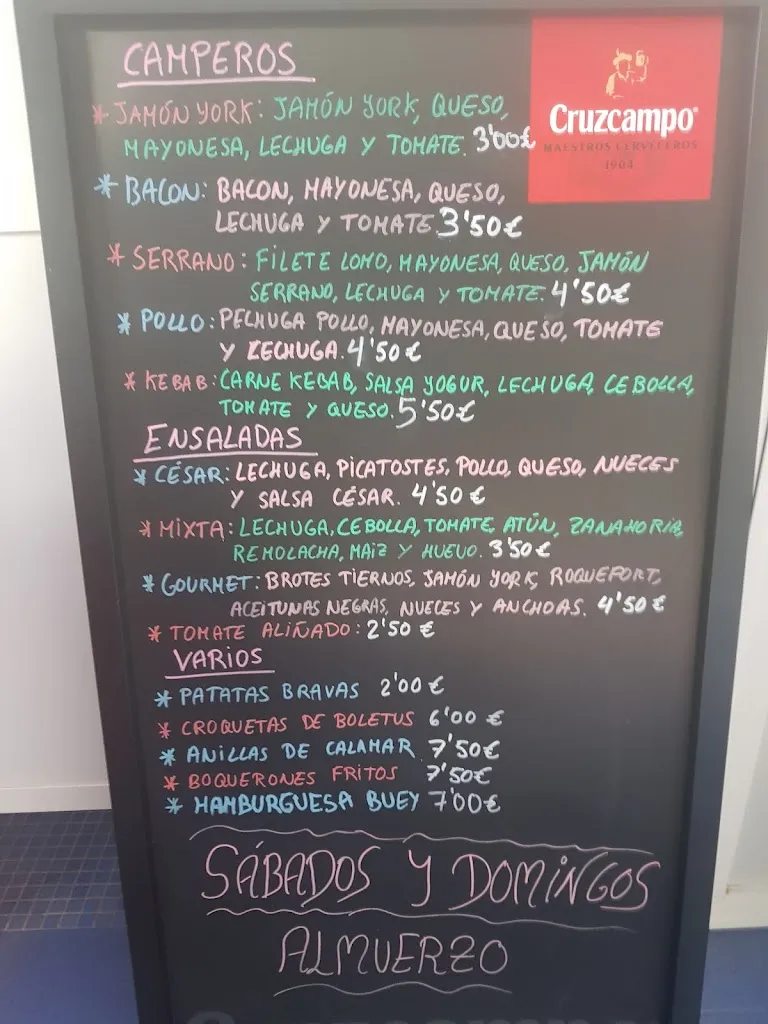 CAMPEROS
Cruzcampo®
MAESTROS CERVECEROS
1904
* JAMÓN YORK: JAMÓN YORK, QUESO,
MAYONESA, LECHUGA Y TOMATE. 3'00€
* BACON: BACON, MAYONESA, QUESO,
LECHUGA Y TOMATE 3'50€
* SERRANO: FILETE LOMO, MAYONESA, QUESO, JAMÓN
SERRANO, LECHUGA Y TOMATE. 4'50€
* POLLO: PECHUGA POLLO, MAYONESA, QUESO, TOMATE
Y LECHUGA. 4'50€
* KEBAB: CARNE KEBAB, SALSA YOGUR, LECHUGA, CEBOLLA,
TOMATE Y QUESO. 5'50€
ENSALADAS
* CÉSAR: LECHUGA, PICATOSTES, POLLO, QUESO, NUECES
Y SALSA CÉSAR. 4'50€
* MIXTA: LECHUGA, CEBOLLA, TOMATE, ATÚN, ZANAHORIA,
REMOLACHA, MAIZ Y HUEVO. 3'50€
* GOURMET: BROTES TIERNOS, JAMÓN YORK, ROQUEFORT,
ACEITUNAS NEGRAS, NUECES Y ANCHOAS. 4'50€
* TOMATE ALIÑADO: 2'50€
VARIOS
* PATATAS BRAVAS 2'00€
* CROQUETAS DE BOLETUS 6'00€
* ANILLAS DE CALAMAR 7'50€
* BOQUERONES FRITOS 7'50€
* HAMBURGUESA BUEY 7'00€
SÁBADOS Y DOMINGOS
ALMUERZO